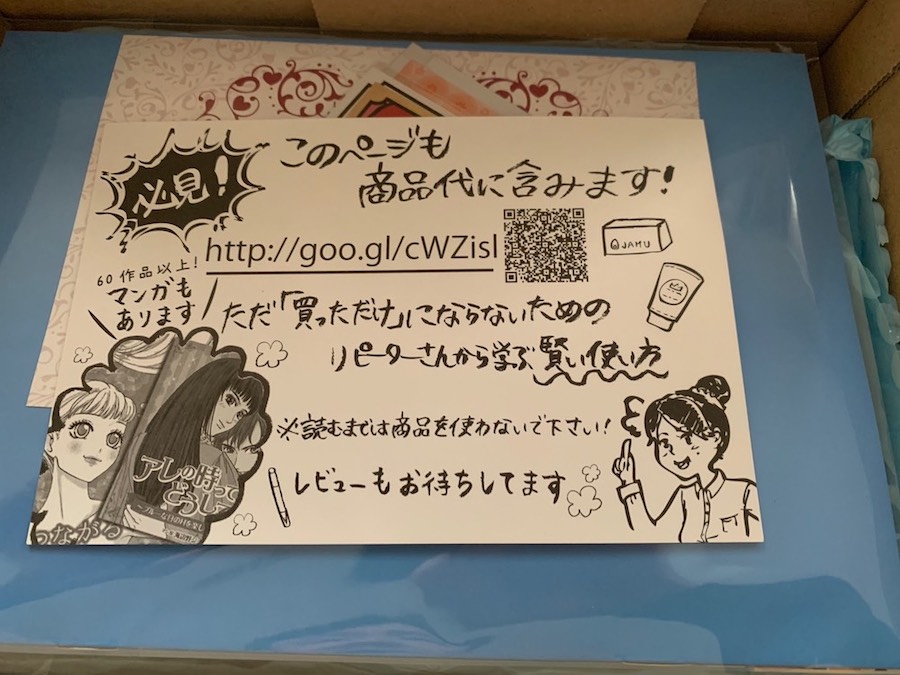 必見!
このページも
商品代に含みます!
http://goo.gl/cWZisl
JAMU
60作品以上!
マンガも
あります
ただ「買っただけ」にならないための
リピーターさんから学ぶ賢い使い方
※読むまでは商品を使わないで下さい!
レビューもお待ちしてます
アレの時って
どうし
つながる